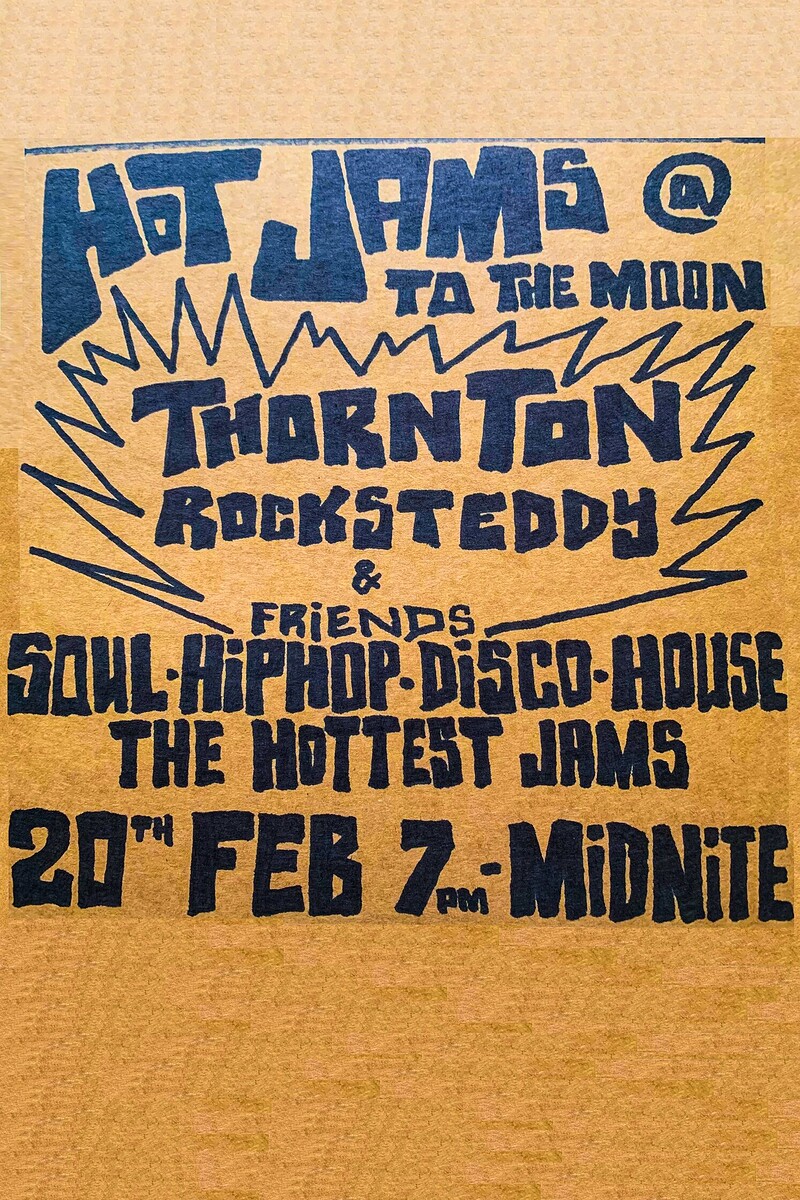 HOT JAMS @
TO THE MOON
THORNTON
ROCKSTEDDY
&
FRiENDS
SOUL·HiPHOP·DiSCO·HOUSE
THE HOTTEST JAMS
20TH FEB 7PM-MiDNiTE